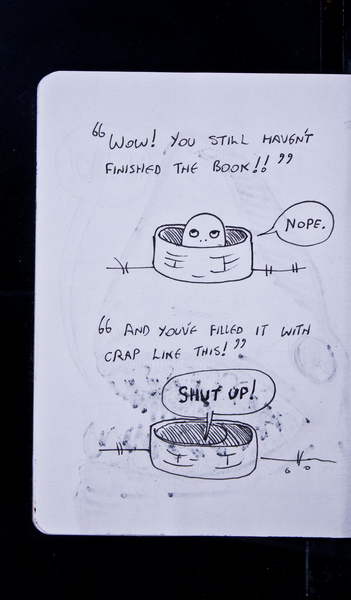 “WOW! YOU STILL HAVEN'T
FINISHED THE BOOK!!”
NOPE.
“AND YOU'VE FILLED IT WITH
CRAP LIKE THIS!”
SHUT UP!